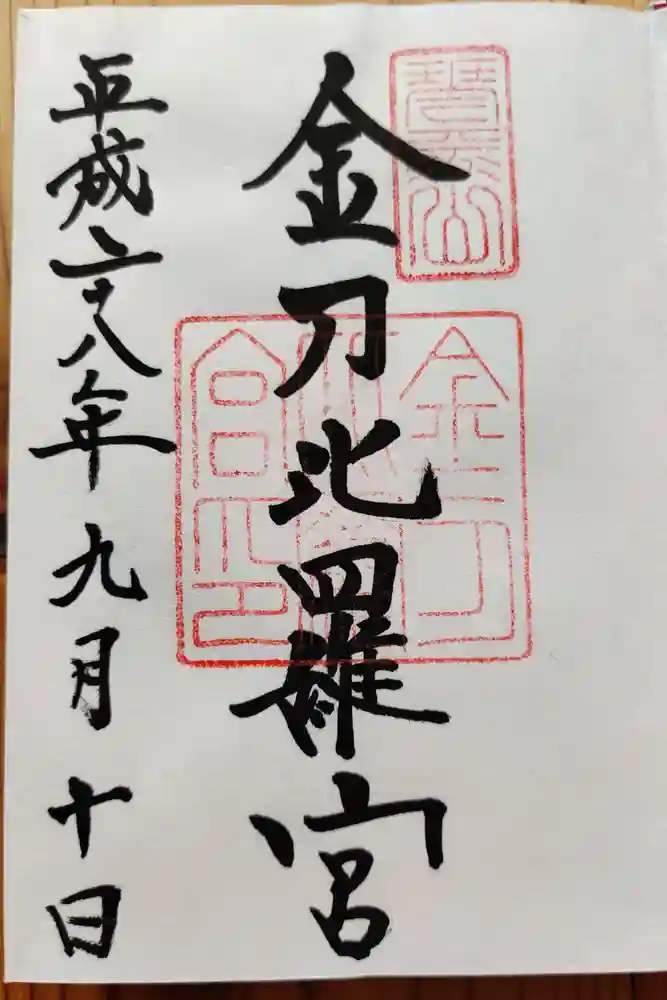 琴平山
金刀比羅宮
金刀
比羅
宮印
平成二十八年九月十日